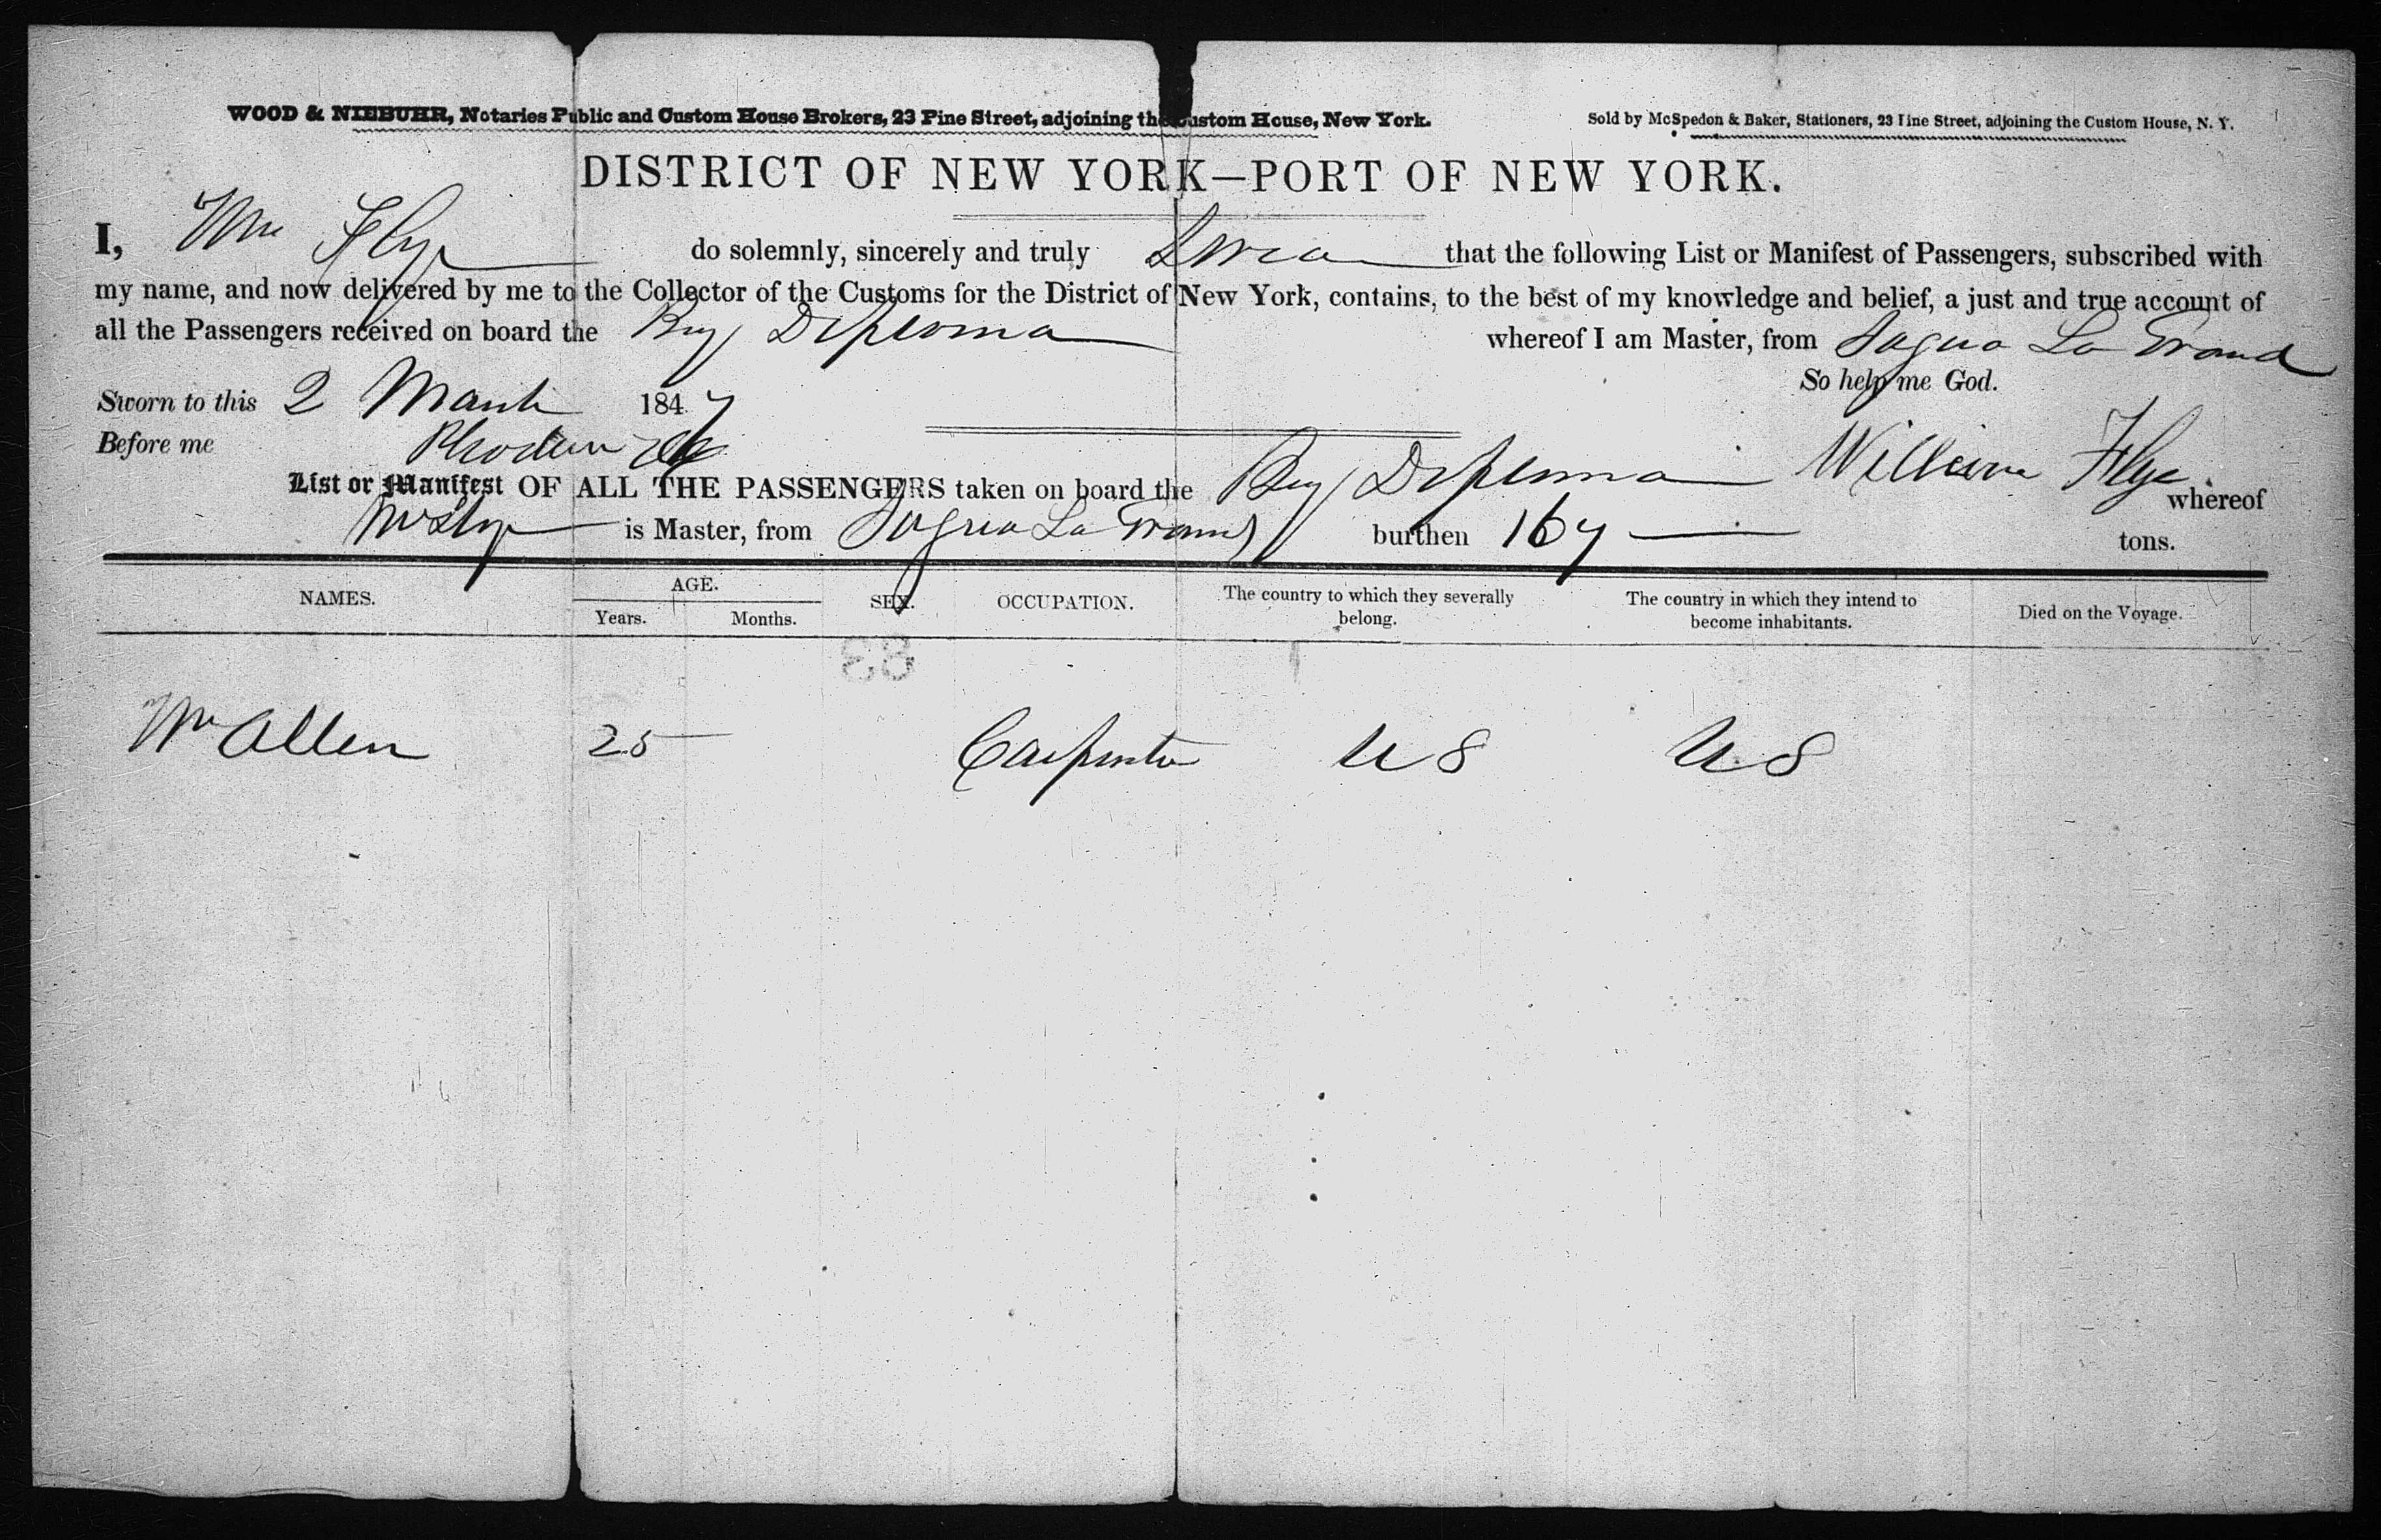 WOOD & NIEBUHR, Notaries Public and Custom House Brokers, 23 Pine Street, adjoining the Custom House, New York.
Sold by McSpedon & Baker, Stationers, 23 Pine Street, adjoining the Custom House, N. Y.
DISTRICT OF NEW YORK—PORT OF NEW YORK.
I, Wm Flye do solemnly, sincerely and truly Swear that the following List or Manifest of Passengers, subscribed with
my name, and now delivered by me to the Collector of the Customs for the District of New York, contains, to the best of my knowledge and belief, a just and true account of
all the Passengers received on board the Brig Diploma whereof I am Master, from Sagua La Grand
So help me God.
Sworn to this 2 March 1847
Before me
William Flye
List or Manifest OF ALL THE PASSENGERS taken on board the Brig Diploma whereof
Wm Flye is Master, from Sagua La Grand burthen 167 tons.
NAMES. AGE. SEX. OCCUPATION. The country to which they severally belong. The country in which they intend to become inhabitants. Died on the Voyage.
Years. Months.
88
Wm Allen 25 Carpenter U S U S